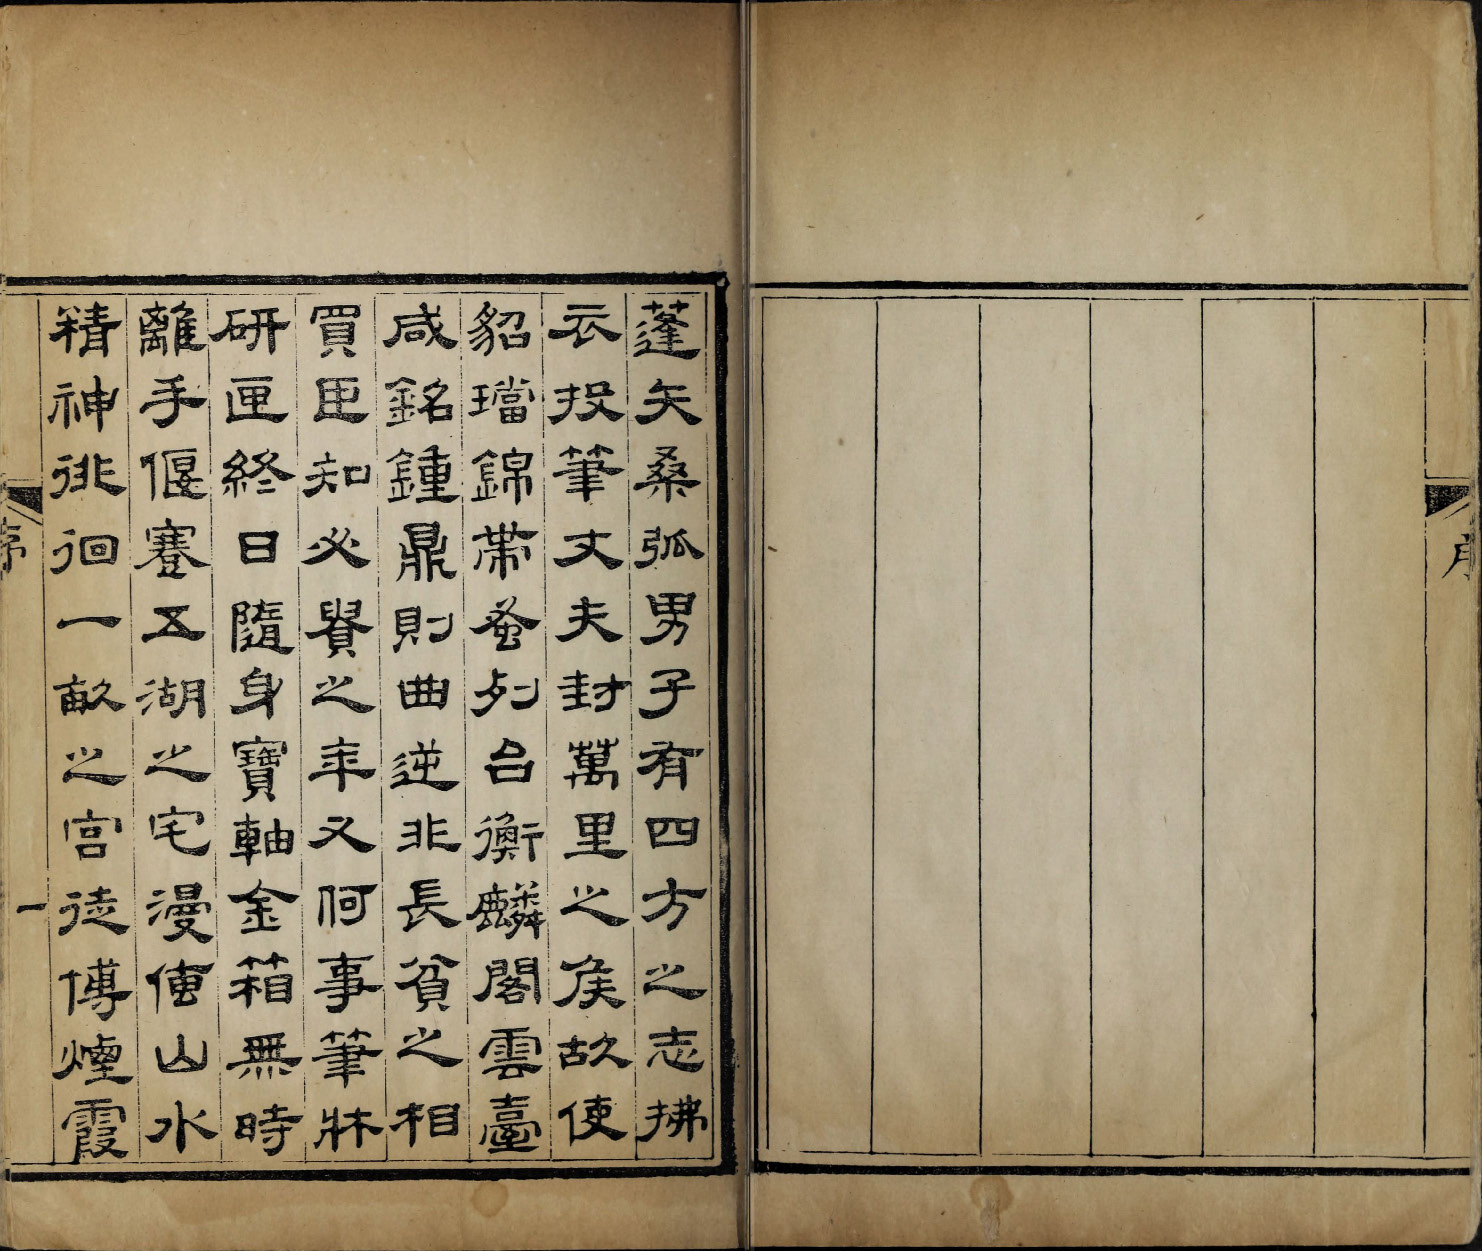 序
蓬矢桑弧男子有四方之志拂
衣投筆丈夫封萬里之侯故使
貂璫錦帶蚤列台衡麟閣雲臺
咸銘鍾鼎則曲逆非長貧之相
買臣知必貴之年又何事筆牀
研匣終日隨身寶軸金箱無時
離手偃蹇五湖之宅漫傳山水
精神徘徊一畝之宮徒傳煙霞
序
一